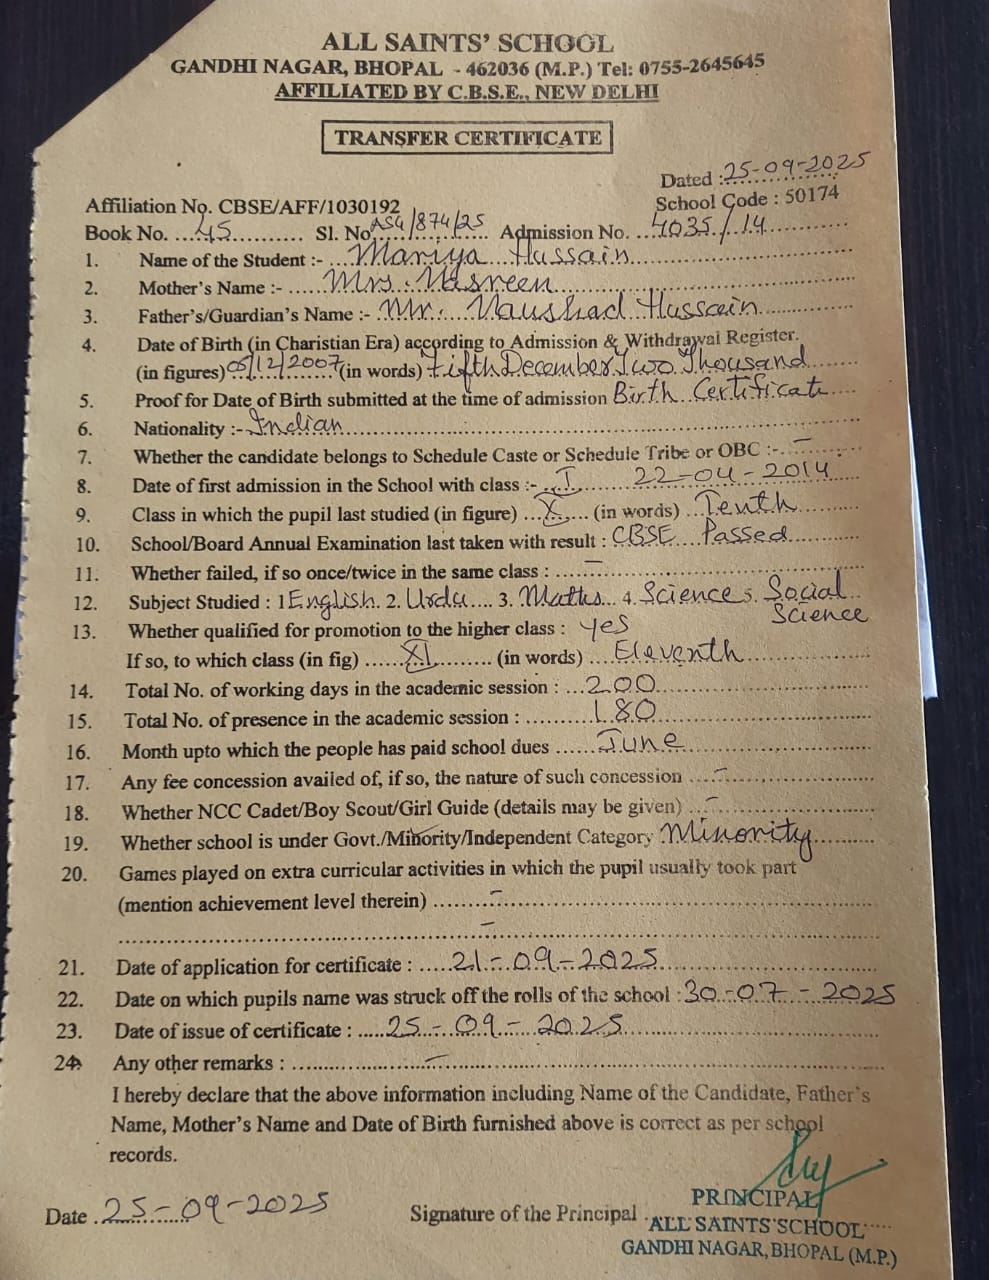 ALL SAINTS' SCHOOL
GANDHI NAGAR, BHOPAL - 462036 (M.P.) Tel: 0755-2645645
AFFILIATED BY C.B.S.E., NEW DELHI
TRANSFER CERTIFICATE
Dated : 25-09-2025
Affiliation No. CBSE/AFF/1030192 School Code : 50174
Book No. 45 Sl. No. AS4/874/25 Admission No. 4035/14
1. Name of the Student :- Mariya Hussain
2. Mother's Name :- Mrs. Nasreen
3. Father's/Guardian's Name :- Mr. Naushad Hussain
4. Date of Birth (in Charistian Era) according to Admission & Withdrawal Register.
(in figures) 05/12/2007 (in words) Fifth December Two Thousand
5. Proof for Date of Birth submitted at the time of admission Birth Certificate
6. Nationality :- Indian
7. Whether the candidate belongs to Schedule Caste or Schedule Tribe or OBC :- –
8. Date of first admission in the School with class :- I 22-04-2014
9. Class in which the pupil last studied (in figure) X (in words) Tenth
10. School/Board Annual Examination last taken with result : CBSE Passed
11. Whether failed, if so once/twice in the same class : –
12. Subject Studied : 1 English 2. Urdu 3. Maths 4. Science 5. Social Science
13. Whether qualified for promotion to the higher class : yes
If so, to which class (in fig) XI (in words) Eleventh
14. Total No. of working days in the academic session : 200
15. Total No. of presence in the academic session : 180
16. Month upto which the people has paid school dues June
17. Any fee concession availed of, if so, the nature of such concession –
18. Whether NCC Cadet/Boy Scout/Girl Guide (details may be given) –
19. Whether school is under Govt./Minority/Independent Category Minority
20. Games played on extra curricular activities in which the pupil usually took part
(mention achievement level therein) –
–
21. Date of application for certificate : 21-09-2025
22. Date on which pupils name was struck off the rolls of the school : 30-07-2025
23. Date of issue of certificate : 25-09-2025
24. Any other remarks : –
I hereby declare that the above information including Name of the Candidate, Father's
Name, Mother's Name and Date of Birth furnished above is correct as per school
records.
Date 25-09-2025 Signature of the Principal
PRINCIPAL
ALL SAINTS SCHOOL
GANDHI NAGAR, BHOPAL (M.P.)